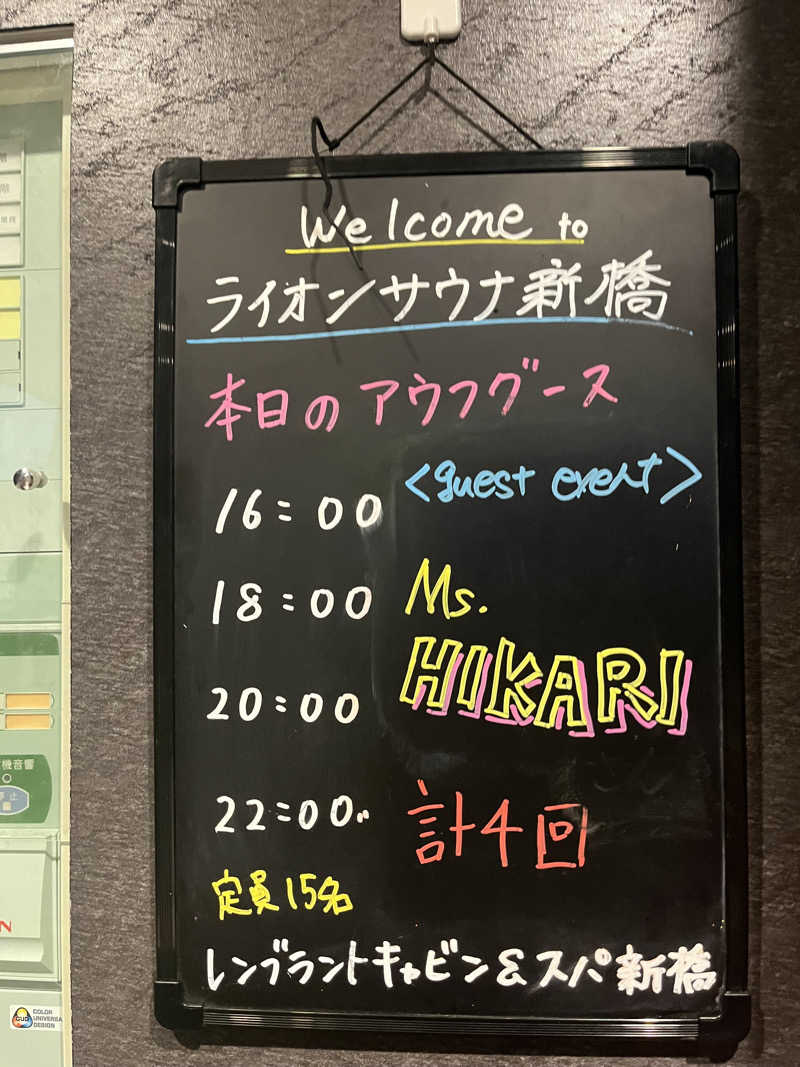 Welcome to
ライオンサウナ新橋
本日のアウフグース
<guest event>
16:00
18:00
Ms.
HIKARI
20:00
22:00
計4回
定員15名
レンブラントキャビン&スパ新橋
階
階
機音響
停止
N
CUD
COLOR
UNIVERSA
DESIGN